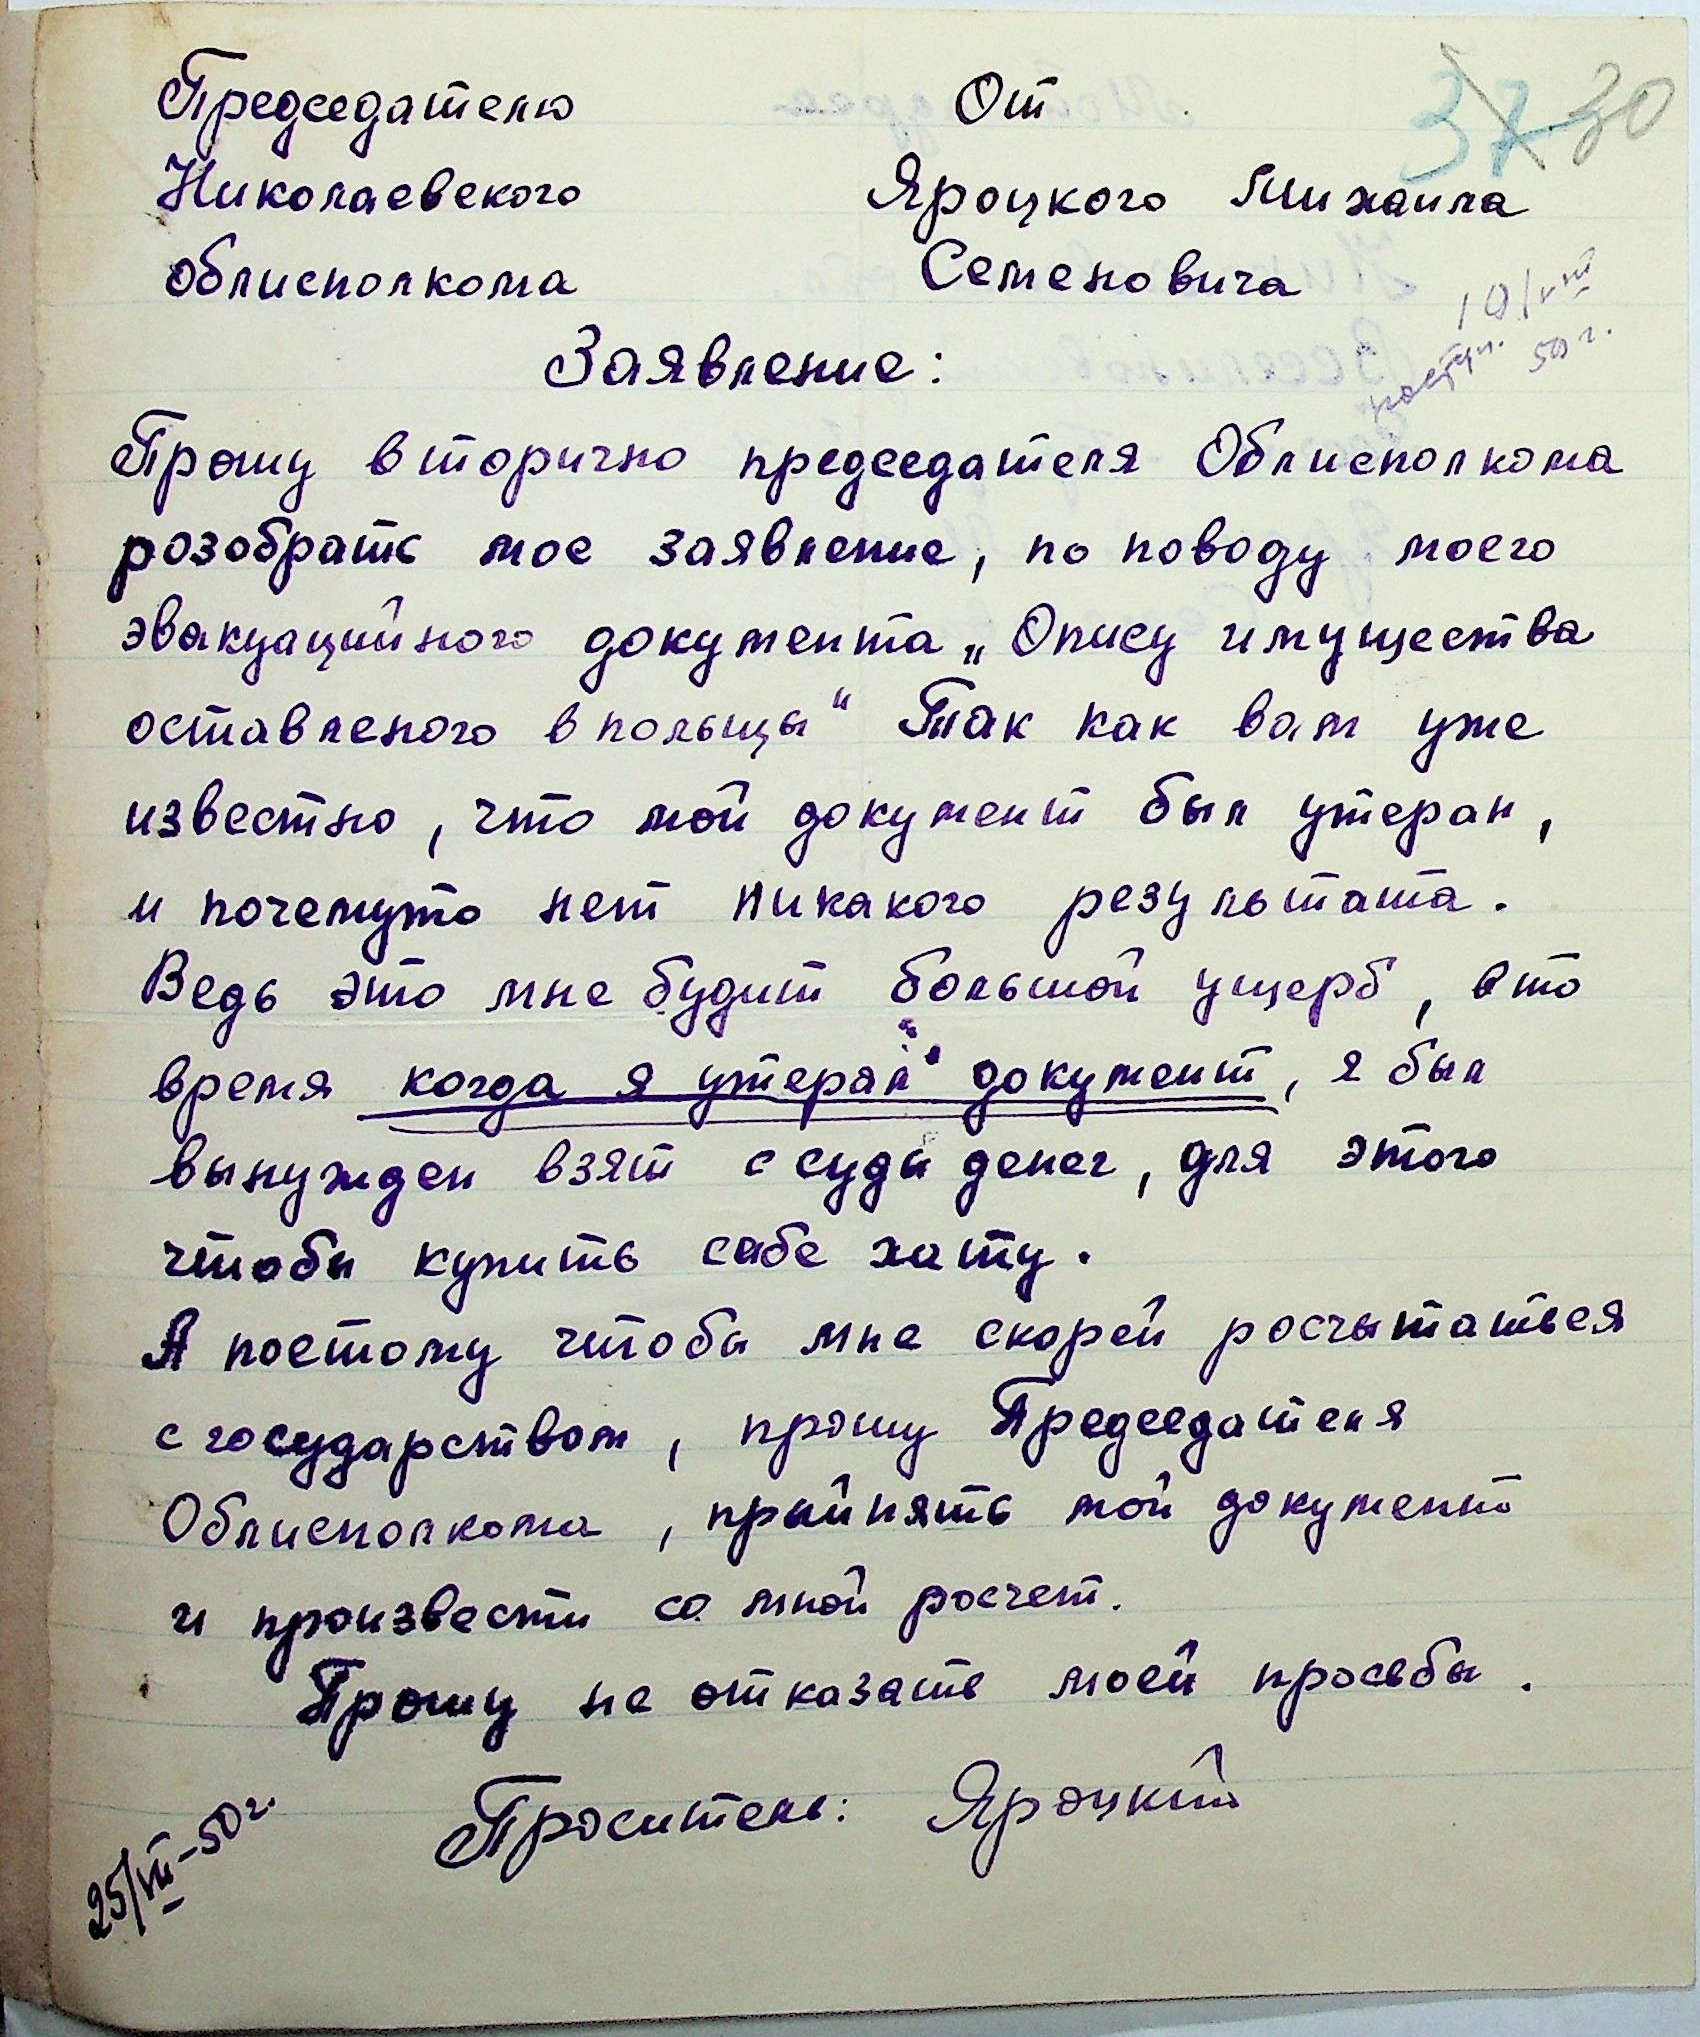 Председателю От 37 30
Николаевского Яроцкого Михаила
облисполкома Семеновича
поступ. 50 г.
Заявление:
Прошу вторично председателя Облисполкома
розобрать мое заявление, по поводу моего
эвакуацийного документа „Опису имущества
оставленого в польщы“ Так как вам уже
известно, что мой документ был утерян,
и почемуто нет никакого результата.
Ведь это мне будит большой ущерб, в то
время когда я утерял документ, я был
вынужден взят ссуды денег, для этого
чтобы купить сабе хату.
А поетому чтобы мне скорей росчытаться
с государством, прошу Председателя
Облисполкома, прыйнять мой документ
и произвести со мной росчет.
Прошу не отказать моей просьбы.
Проситель: Яроцкий
25/VIII-50 г.